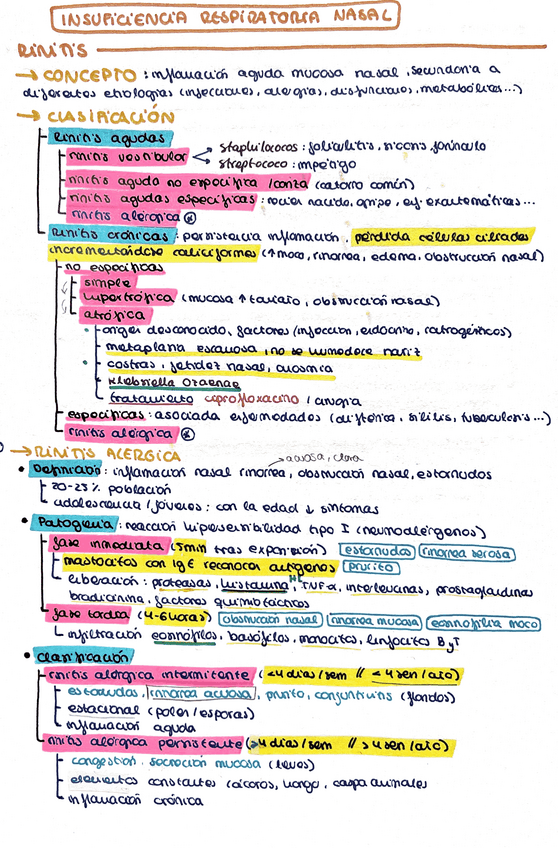 INSUFICIENCIA RESPIRATORIA NASAL
RINITIS
→ CONCEPTO: inflamación aguda mucosa nasal, secundaria a
diferentes etiologías (infecciones, alergias, disfunciones, metabólicas...)
→ CLASIFICACIÓN
Rinitis agudas
rinitis vestibular
staphilococos: foliculitis, sicosis, forúnculo
streptococo: impétigo
rinitis aguda no específica / coriza (catarro común)
rinitis agudas específicas: recién nacido, gripe, enf exantemáticas...
rinitis alérgica *
Rinitis crónicas: persistencia inflamación, pérdida células ciliadas
incrementándose caliciformes (↑ moco, rinorrea, edema, obstrucción nasal)
no específicas
simple
hipertrófica (mucosa ↑ tamaño, obstrucción nasal)
atrófica
origen desconocido, factores (infección, endocrino, iatrogénicos)
metaplasia escamosa, no se humedece nariz
costras, fetidez nasal, anosmia
Klebsiella Ozaenae
tratamiento ciprofloxacino / cirugía
específicas: asociada enfermedades (difteria, sífilis, tuberculosis...)
rinitis alérgica *
→ RINITIS ALÉRGICA
acuosa, clara
• Definición: inflamación nasal rinorrea, obstrucción nasal, estornudos
20-25% población
adolescencia / jóvenes: con la edad ↓ síntomas
• Patogenia: reacción hipersensibilidad tipo I (neumoalérgenos)
fase inmediata (5min tras exposición) estornudos rinorrea serosa
mastocitos con IgE reconocen antígenos prurito
liberación: proteasas, histamina, TNF-α, interleucinas, prostaglandinas
bradicinina, factores quimiotácticos
fase tardía (4-6 horas) obstrucción nasal rinorrea mucosa eosinofilia moco
infiltración eosinófilos, basófilos, monocitos, linfocitos B y T
• Clasificación
rinitis alérgica intermitente (<4 días/sem // <4 sem/año)
estornudos, rinorrea acuosa, prurito, conjuntivitis
estacional (polen/esporas)
inflamación aguda
rinitis alérgica persistente (>4 días/sem // >4 sem/año)
congestión, secreción mucosa
elementos constantes (ácaros, hongo, caspa animales
inflamación crónica